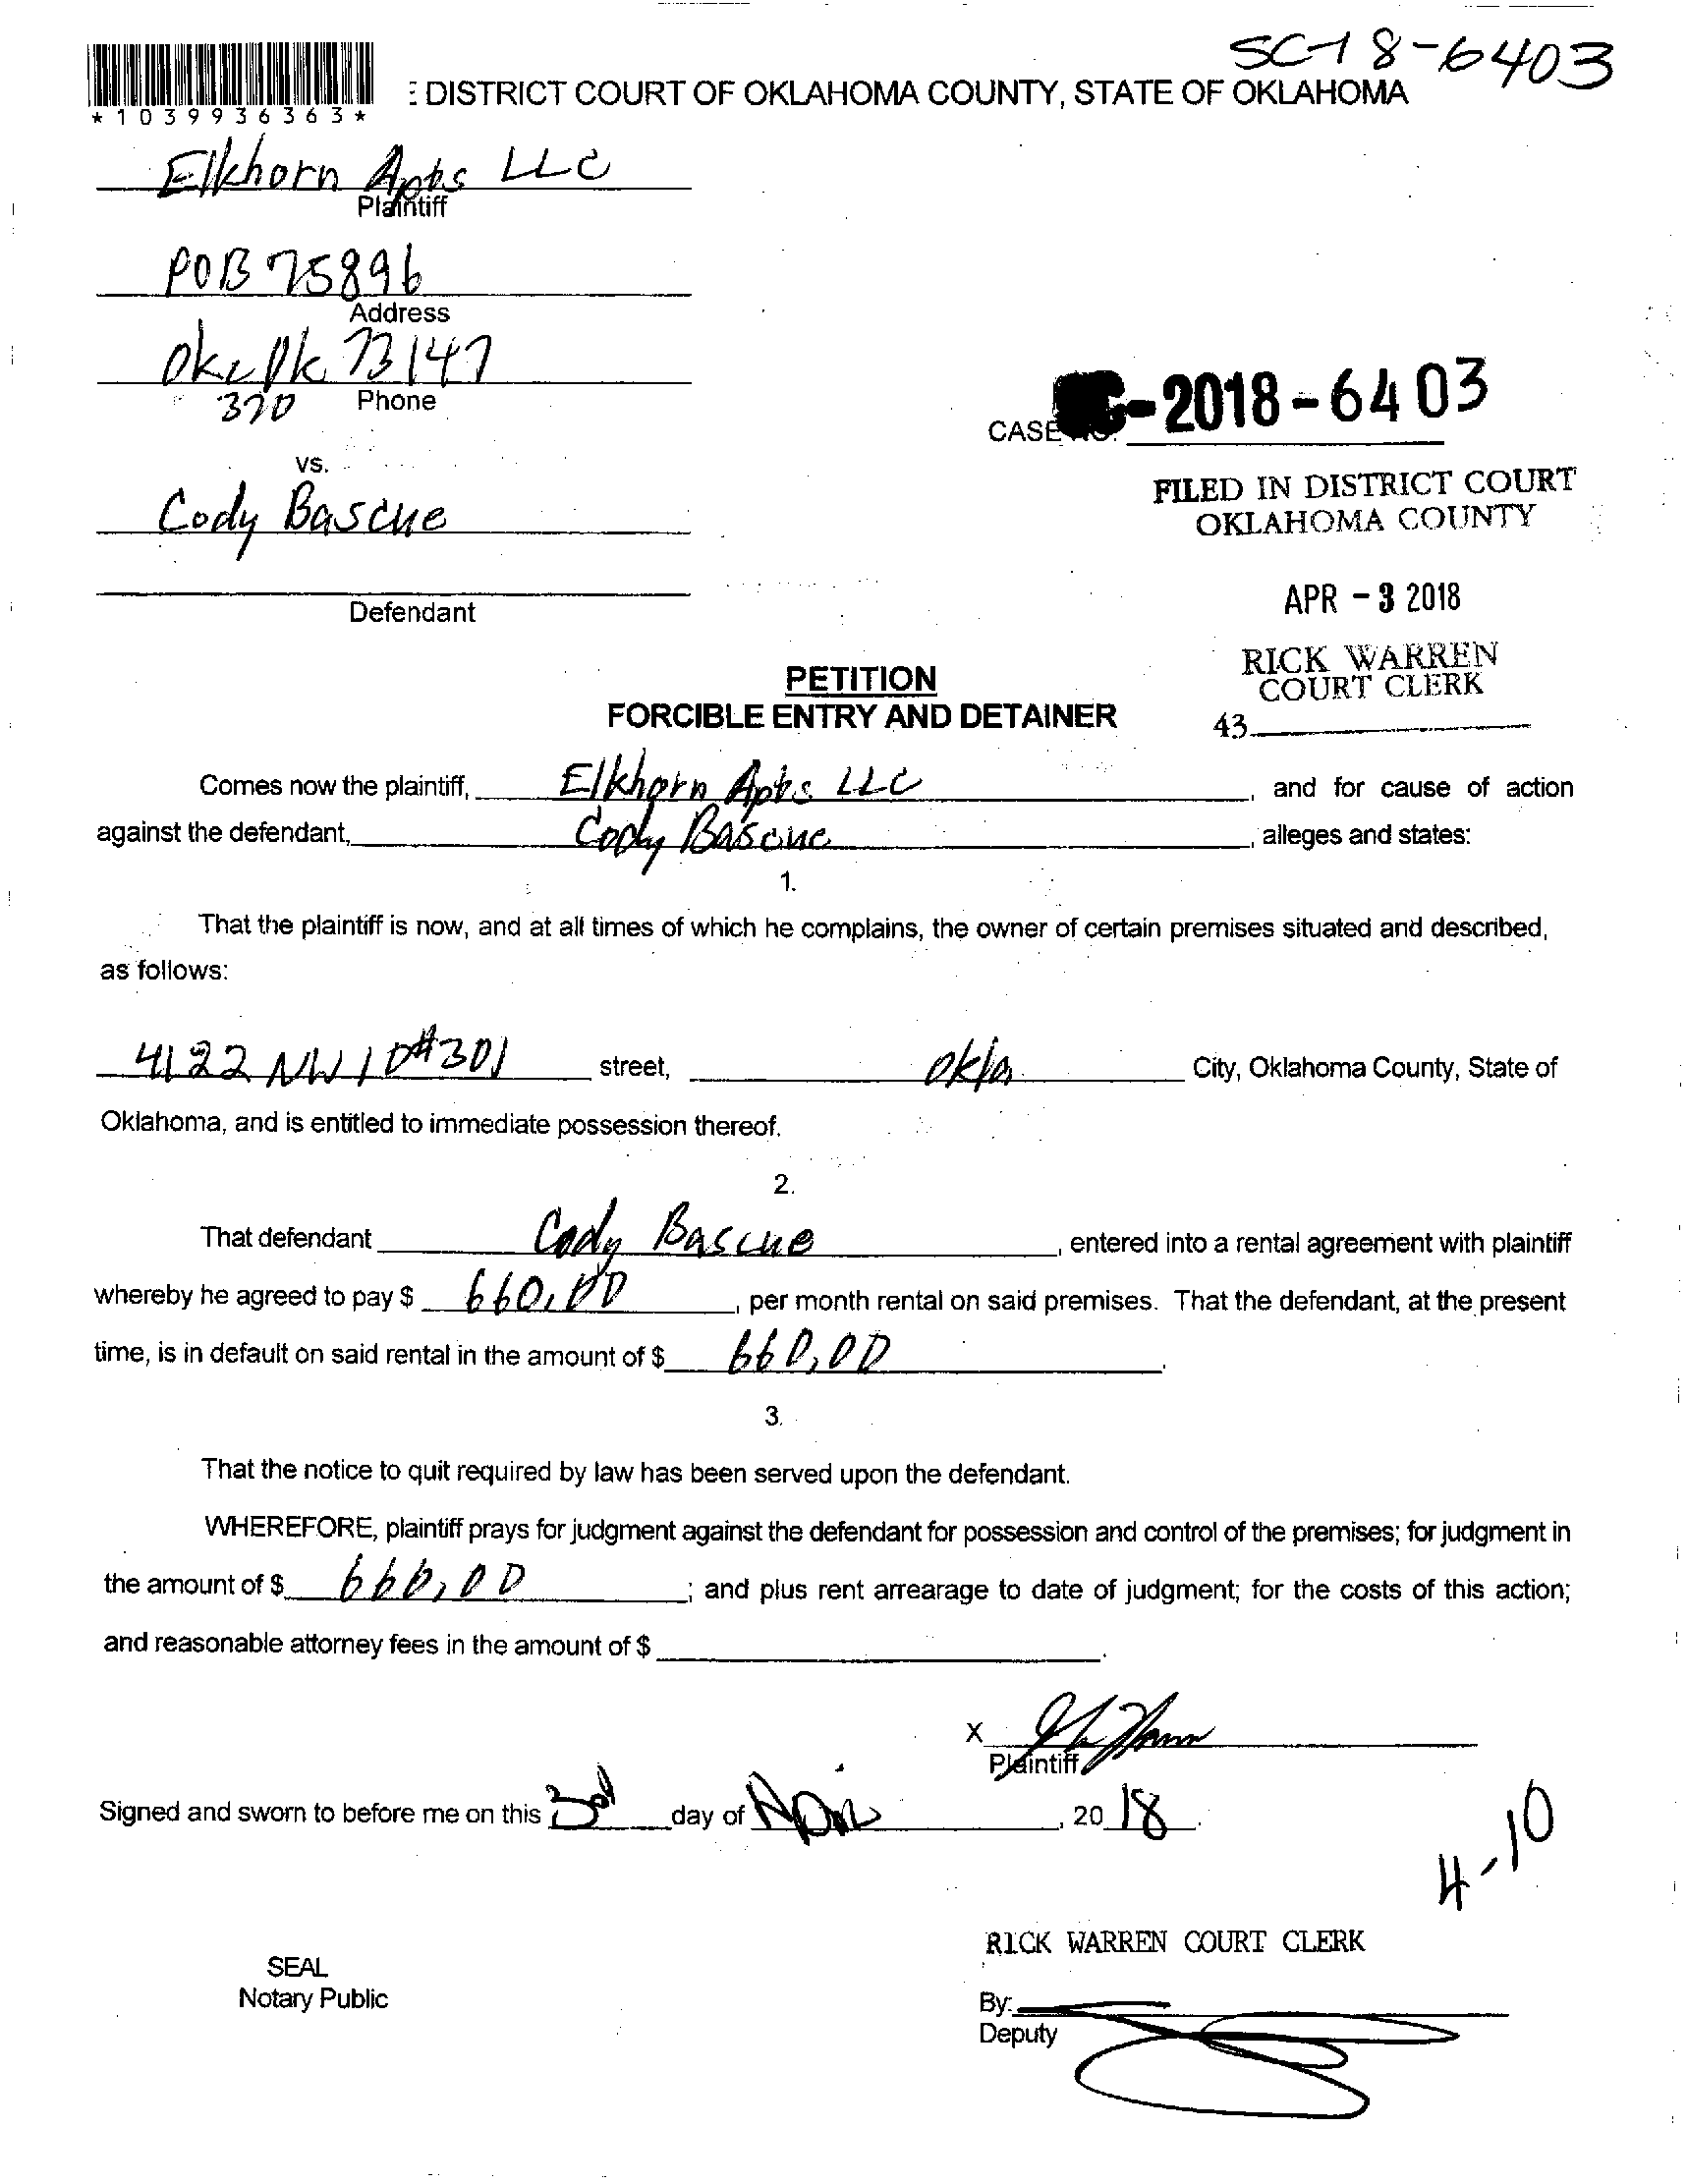 SC-18-6403
*1039936363*
: DISTRICT COURT OF OKLAHOMA COUNTY, STATE OF OKLAHOMA
Elkhorn Apts LLC
Plaintiff
POB 75896
Address
Okc Ok 73147
370 Phone
CASE NO. -2018-6403
vs.
Cody Bascue
FILED IN DISTRICT COURT
OKLAHOMA COUNTY
APR - 3 2018
Defendant
RICK WARREN
COURT CLERK
43
PETITION
FORCIBLE ENTRY AND DETAINER
Comes now the plaintiff, Elkhorn Apts LLC, and for cause of action
against the defendant, Cody Bascue, alleges and states:
1.
That the plaintiff is now, and at all times of which he complains, the owner of certain premises situated and described,
as follows:
4122 NW 10 #301 street, Okla City, Oklahoma County, State of
Oklahoma, and is entitled to immediate possession thereof.
2.
That defendant Cody Bascue, entered into a rental agreement with plaintiff
whereby he agreed to pay $ 660,00, per month rental on said premises. That the defendant, at the present
time, is in default on said rental in the amount of $ 660,00.
3.
That the notice to quit required by law has been served upon the defendant.
WHEREFORE, plaintiff prays for judgment against the defendant for possession and control of the premises; for judgment in
the amount of $ 660,00; and plus rent arrearage to date of judgment; for the costs of this action;
and reasonable attorney fees in the amount of $ .
X
Plaintiff
Signed and sworn to before me on this 3rd day of , 20 18.
4-10
RICK WARREN COURT CLERK
SEAL
Notary Public
By:
Deputy